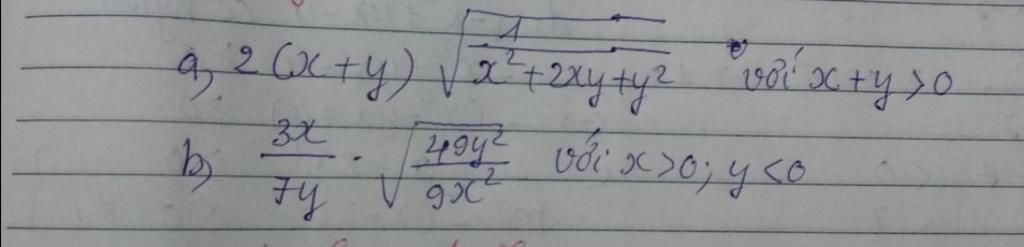 a, 2(x+y) √(1/(x²+2xy+y²)) với x+y>0
b, 3x/7y · √(49y²/9x²) với x>0; y<0